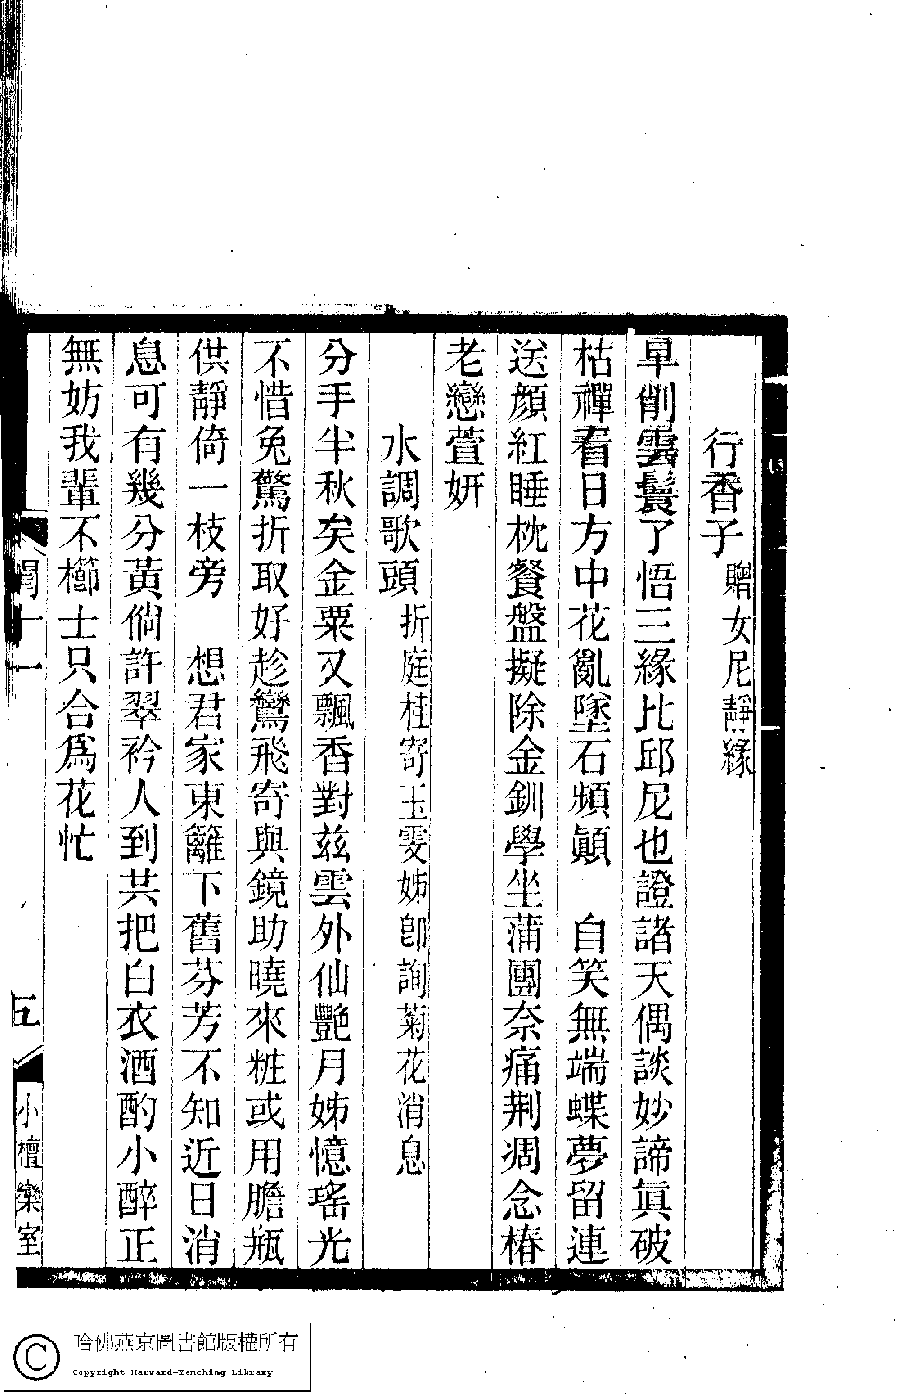 行香子 贈女尼靜緣
早削雲鬟了悟三緣比邱尼也證諸天偶談妙諦眞破
枯禪看日方中花亂墜石頻顚　自笑無端蝶夢留連
送顏紅睡枕餐盤擬除金釧學坐蒲團奈痛荆凋念椿
老戀萱妍
水調歌頭 折庭桂寄玉雯姊卽詢菊花消息
分手半秋矣金粟又飄香對茲雲外仙艷月姊憶瑤光
不惜兔驚折取好趁鸞飛寄與鏡助曉來粧或用膽瓶
供靜倚一枝旁　想君家東籬下舊芬芳不知近日消
息可有幾分黃倘許翠衿人到共把白衣酒酌小醉正
無妨我輩不櫛士只合爲花忙
五
小檀欒室
哈佛燕京圖書館版權所有
Copyright Harvard-Yenching Library